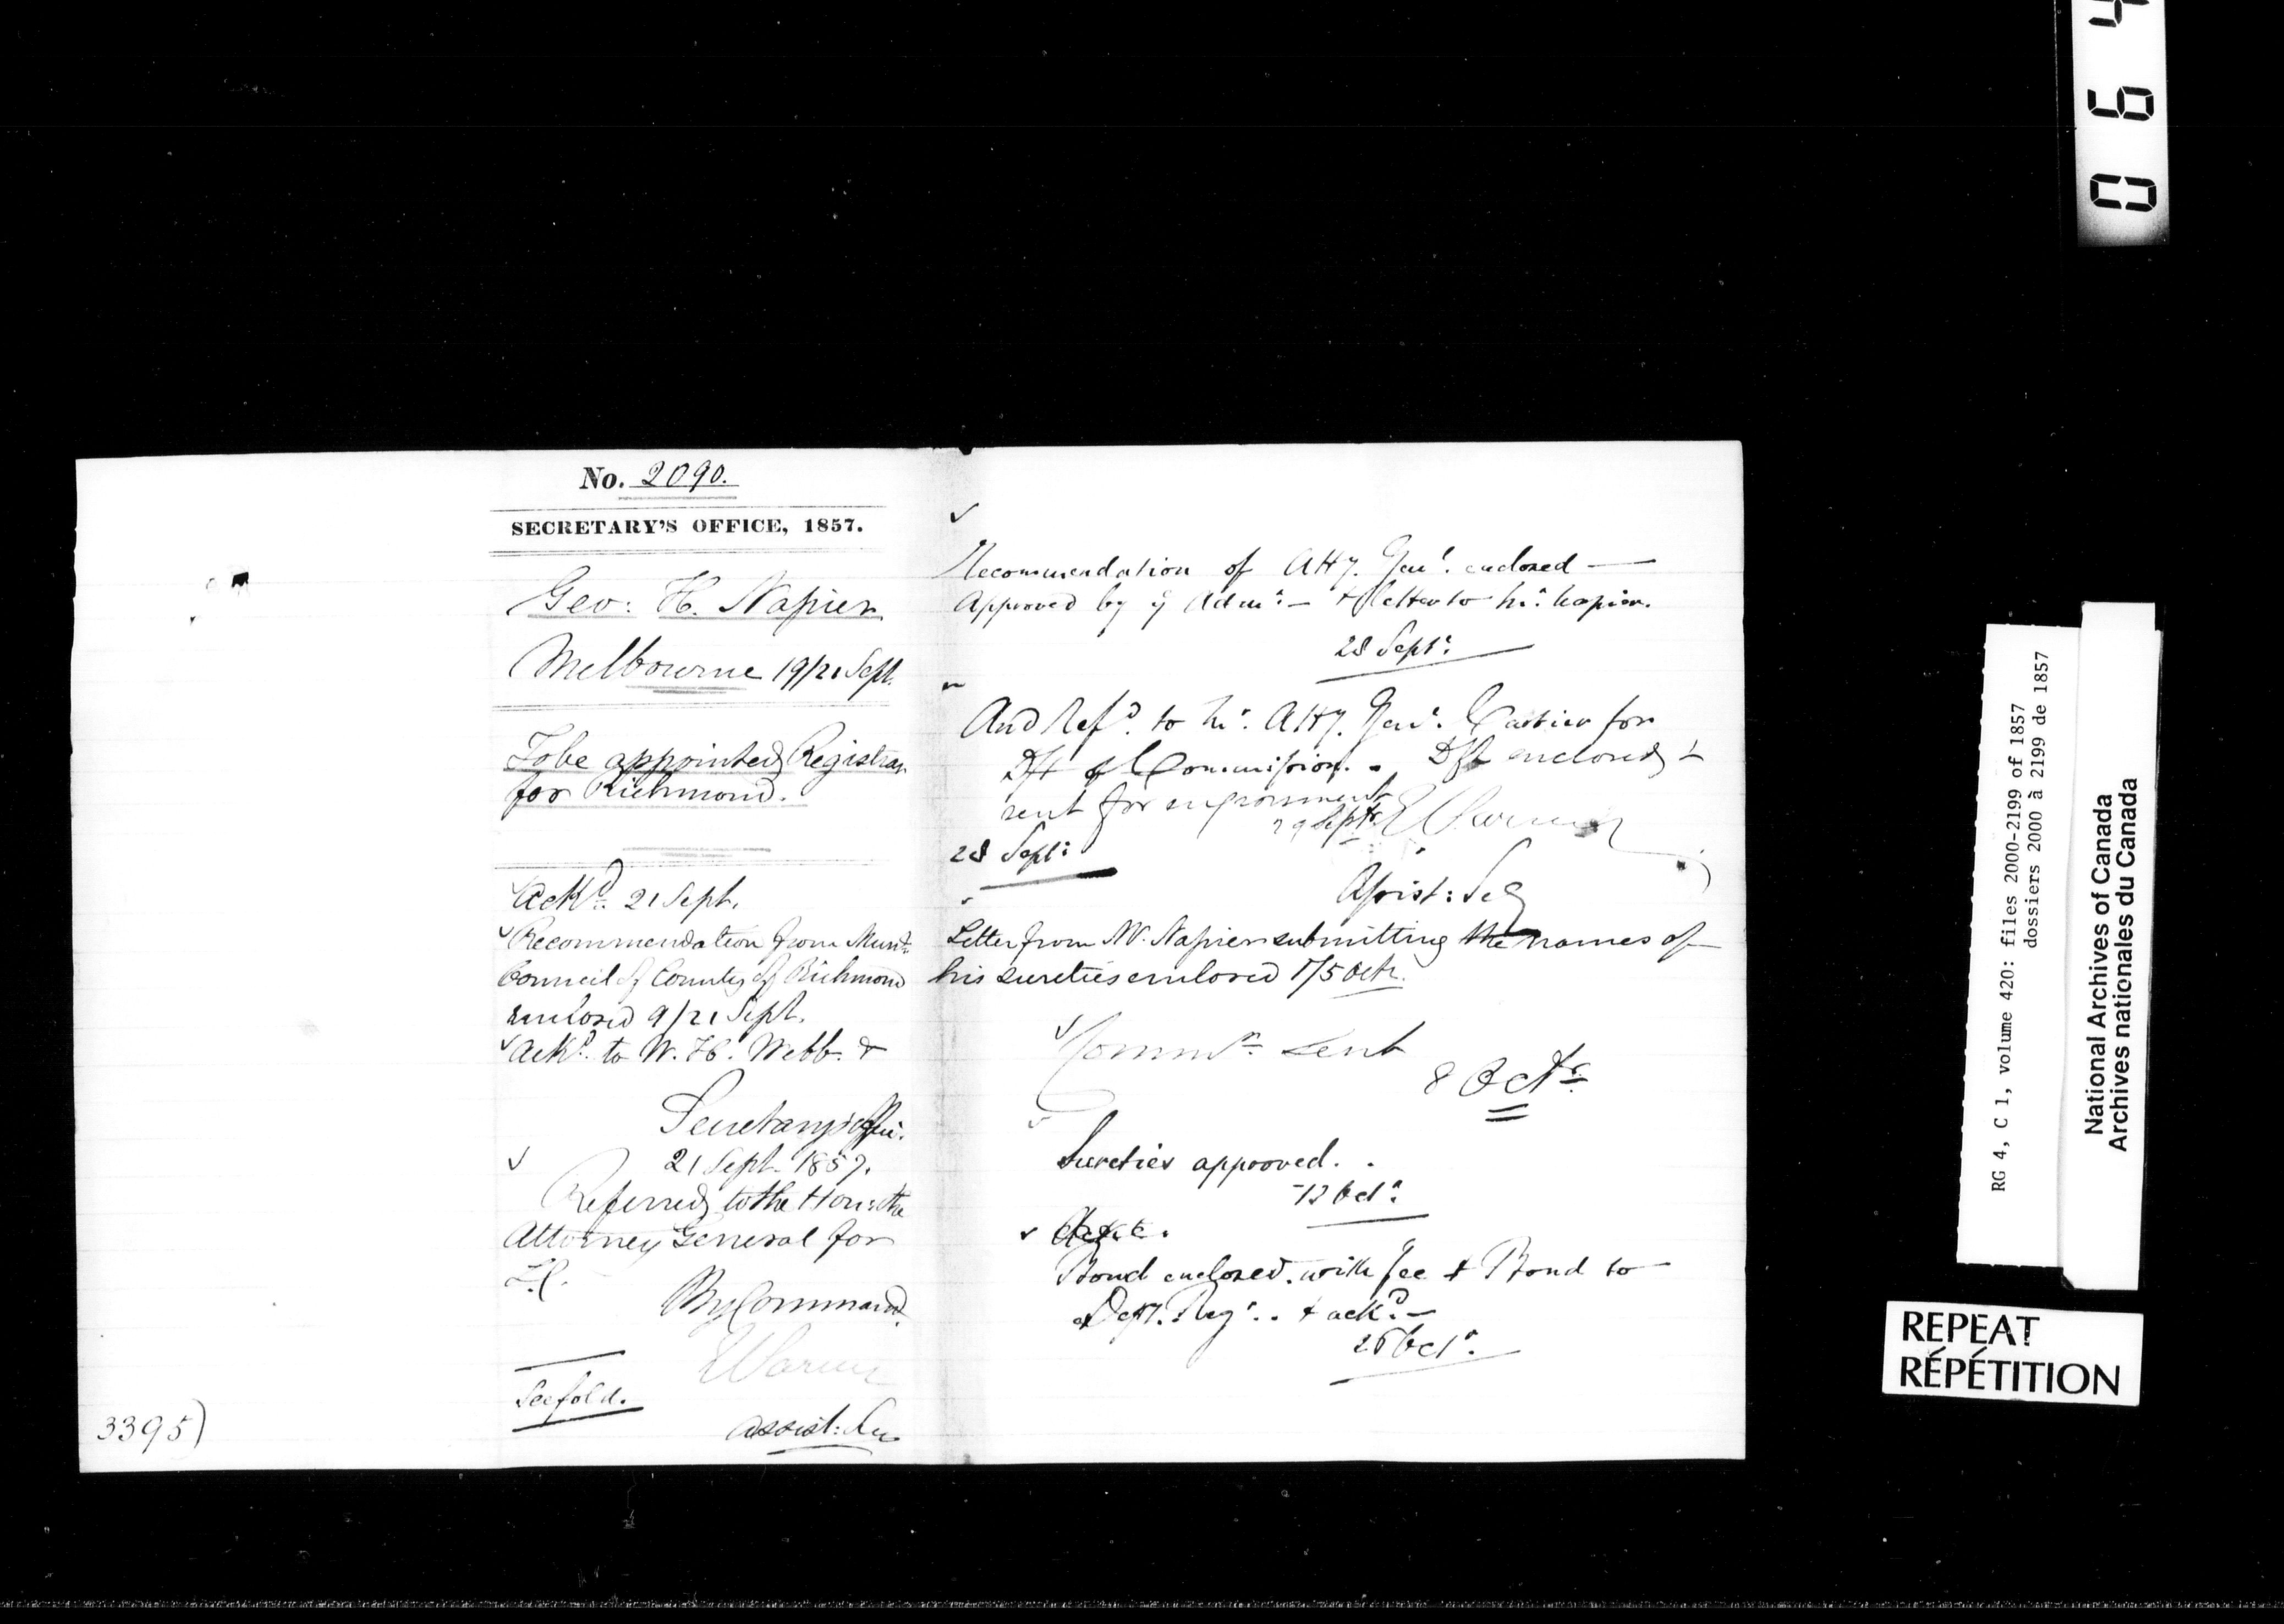 No. 2090.
SECRETARY'S OFFICE, 1857.
Geo: H. Napier
Melbourne 19/21 Sept.
To be appointed Registrar
for Richmond.
Ackd. 21 Sept.
Recommendation from Munic.
Council of County of Richmond
enclosed 9/21 Sept.
Ackd. to W. H. Webb. &
Secretary's Offi.
21 Sept. 1857.
Referred to the Hon: the
Attorney General for
L.C.
By Command
E Parent
Assist: Sec
See fold.
3395)
Recommendation of Atty. Genl. enclosed —
Approved by y Admr. — & letter to Mr. Napier.
28 Sept:
And Refd. to Mr. Atty. Genl. Cartier for
Dft of Commission. - Dft enclosed &
sent for engrossment
29 Septr E Parent
28 Sept:
Assist: Sec
Letter from Mr. Napier submitting the names of
his sureties enclosed 1/5 Octr.
Commn. sent
8 Octr.
Sureties approved. .
12 Octr.
Bond enclosed. with fee & Bond to
Depy. Regr. . & ackd. —
26 Octr.
0 6 4
RG 4, C 1, volume 420: files 2000-2199 of 1857
dossiers 2000 à 2199 de 1857
National Archives of Canada
Archives nationales du Canada
REPEAT
RÉPÉTITION